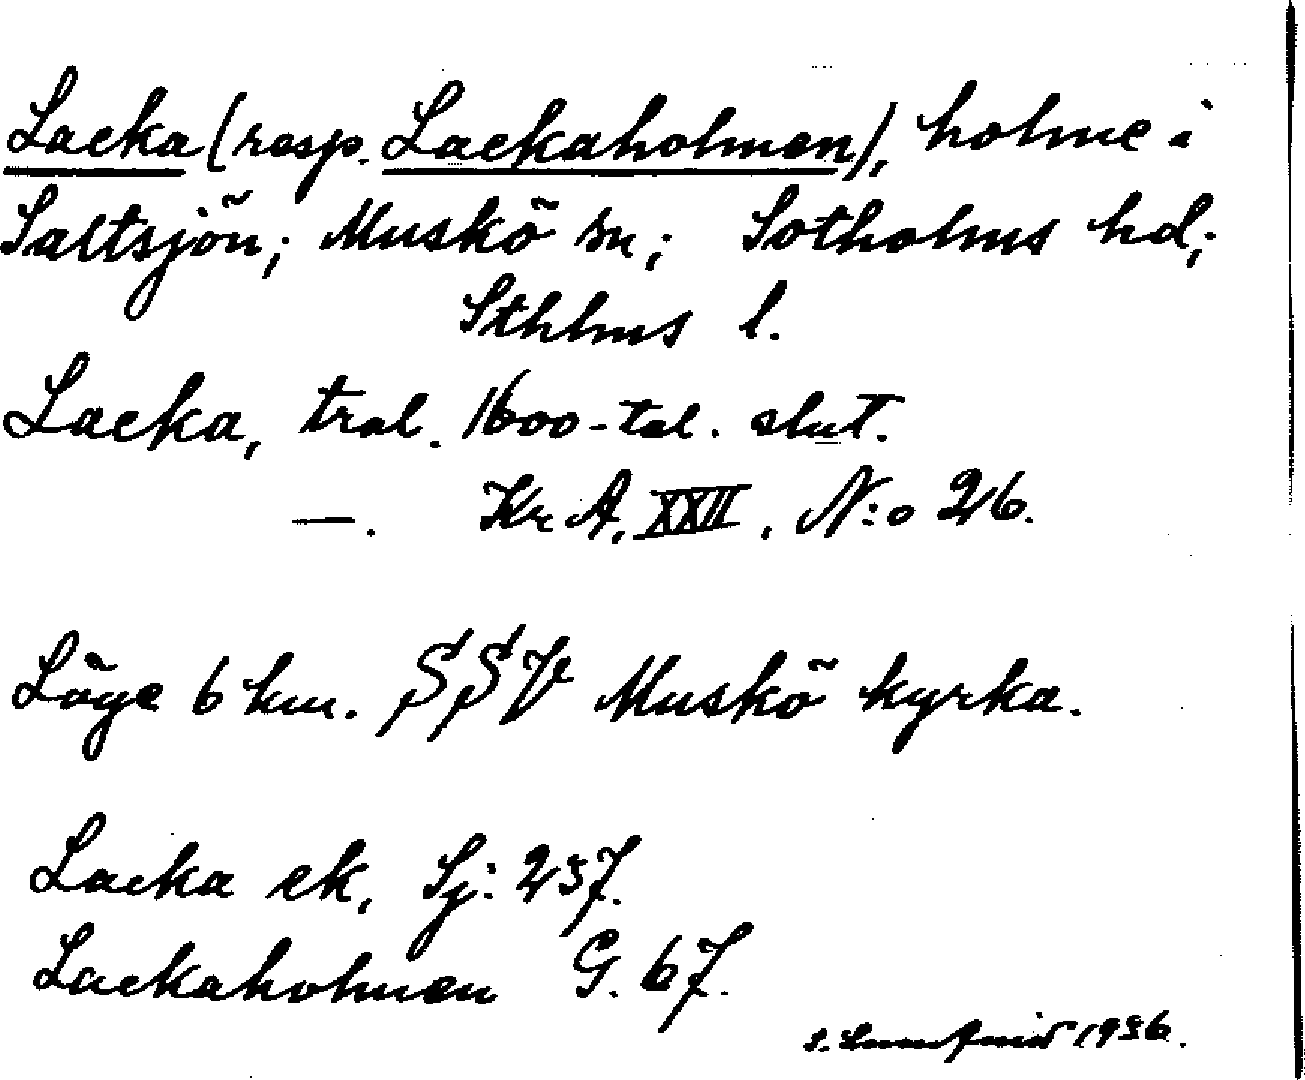 Lacka (resp. Lackaholmen), holme i
Saltsjön; Muskö sn; Sotholms hd;
Sthlms l.
Lacka, tral. 1600-tal. slut.
—. Kr A, XXII, N:o 26.
Läge 6 km. SSV Muskö kyrka.
Lacka ek, Sj: 237.
Lackaholmen G. 67.
1936.